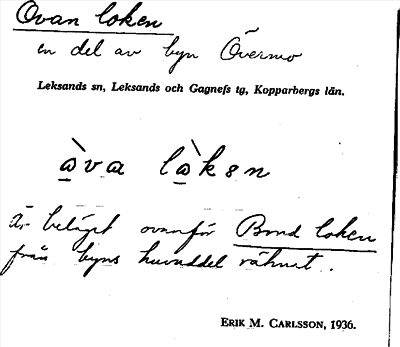 Ovan loken
en del av byn Övermo
Leksands sn, Leksands och Gagnefs tg, Kopparbergs län.
à̱va là̱kən
Är beläget ovanför Bond loken
från byns huvuddel räknat.
ERIK M. CARLSSON, 1936.